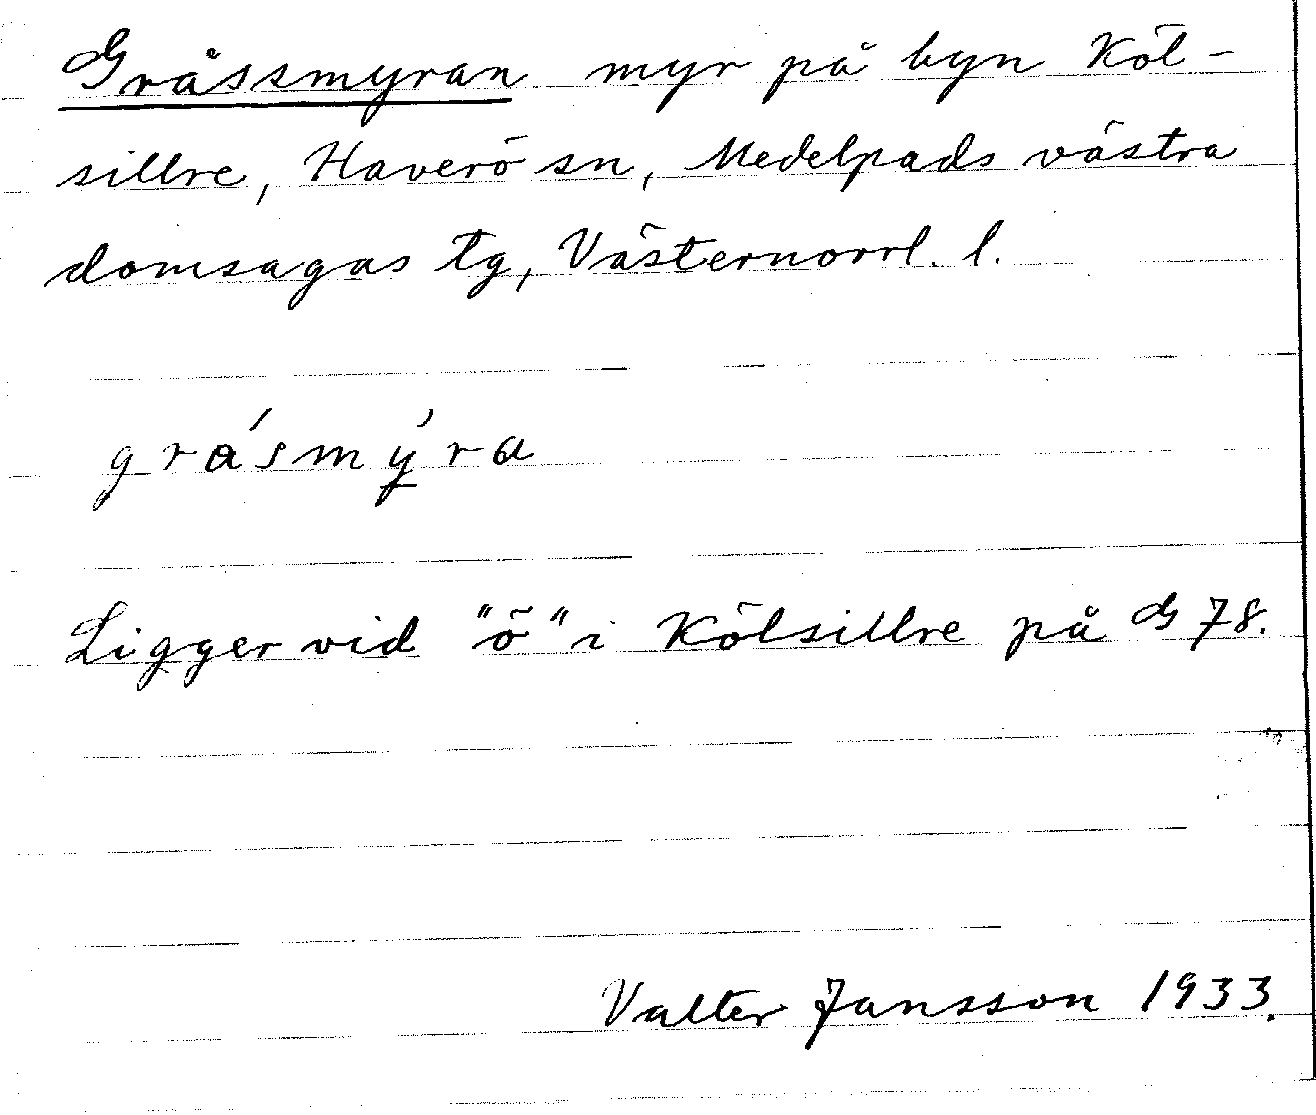 Gråssmyran myr på byn Köl-
sillre, Haverö sn, Medelpads västra
domsagas tg, Västernorrl. l.
grásmýra
Ligger vid "ö" i Kölsillre på G 78.
Valter Jansson 1933.